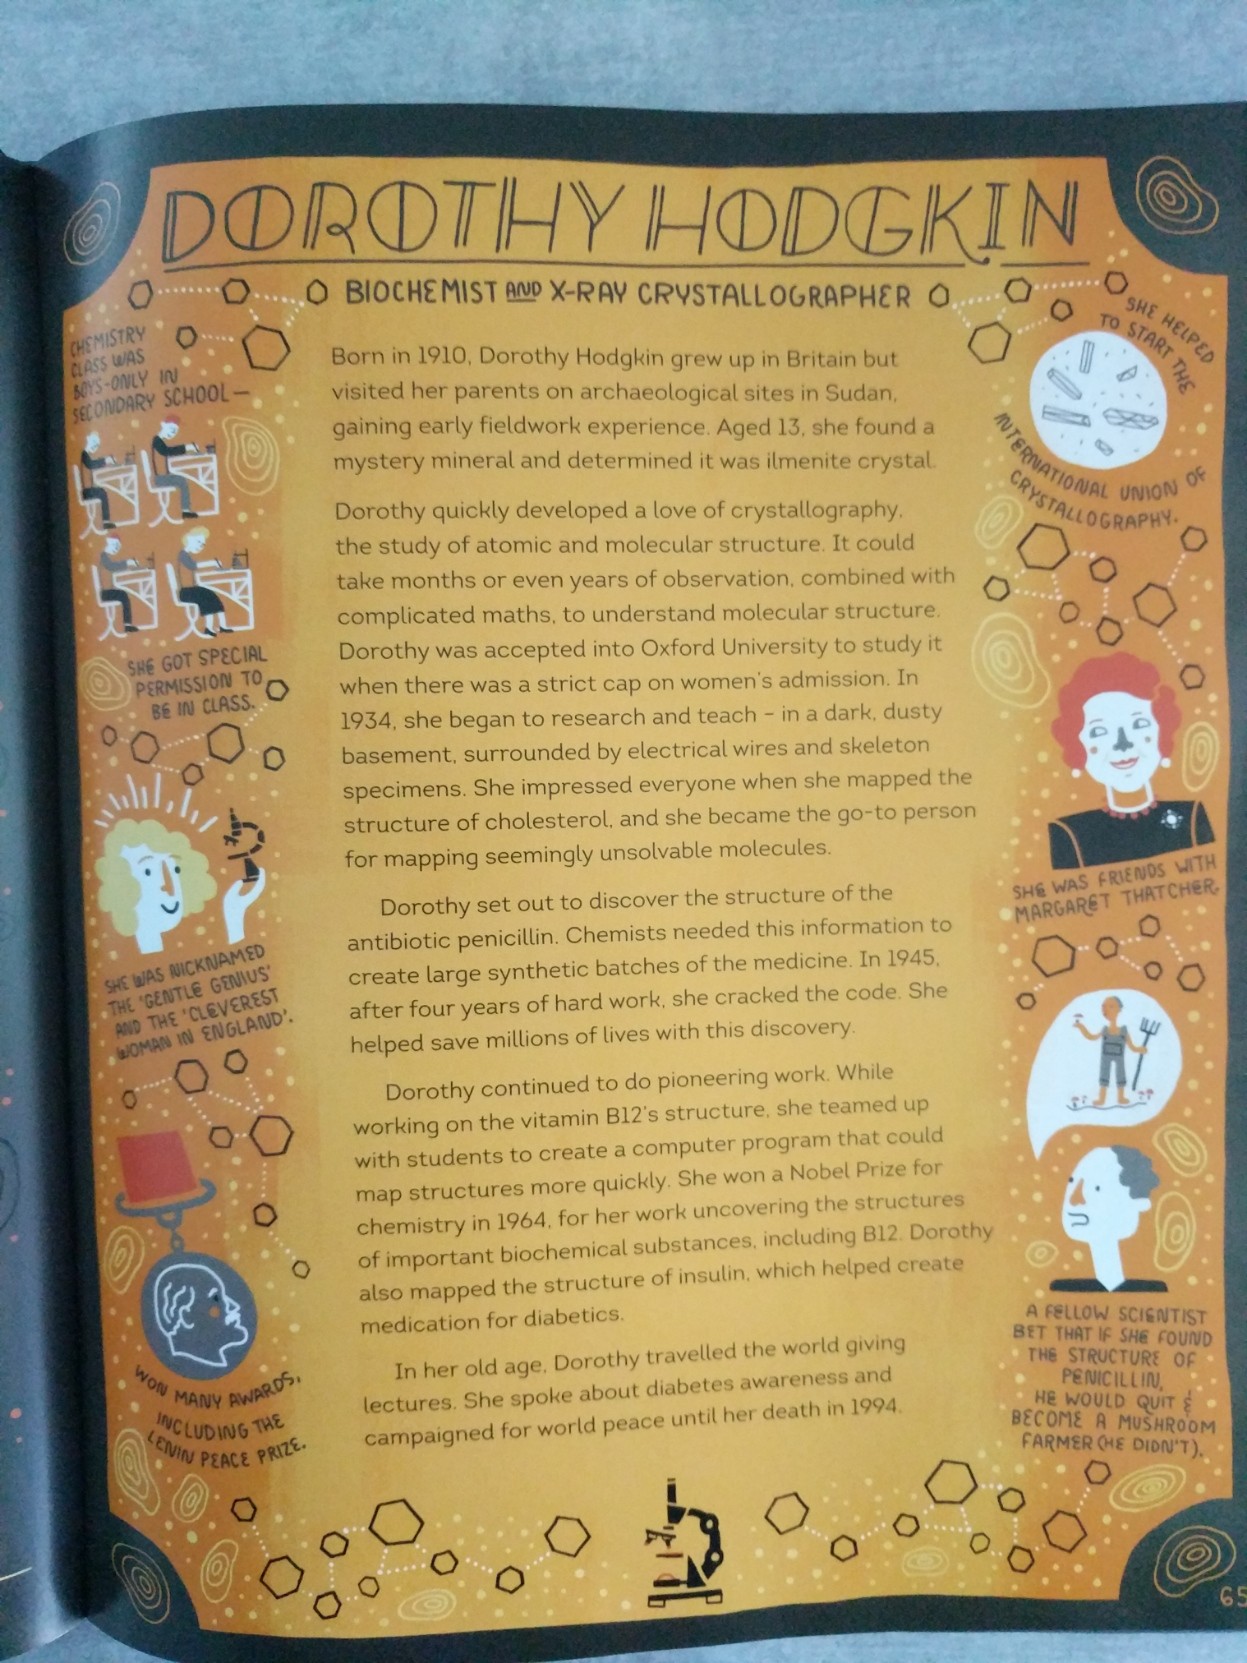 DOROTHY HODGKIN
BIOCHEMIST AND X-RAY CRYSTALLOGRAPHER
CHEMISTRY
CLASS WAS
BOYS-ONLY IN
SECONDARY SCHOOL –
SHE GOT SPECIAL
PERMISSION TO
BE IN CLASS.
SHE WAS NICKNAMED
THE 'GENTLE GENIUS'
AND THE 'CLEVEREST
WOMAN IN ENGLAND'.
WON MANY AWARDS,
INCLUDING THE
LENIN PEACE PRIZE.
Born in 1910, Dorothy Hodgkin grew up in Britain but
visited her parents on archaeological sites in Sudan,
gaining early fieldwork experience. Aged 13, she found a
mystery mineral and determined it was ilmenite crystal.
Dorothy quickly developed a love of crystallography,
the study of atomic and molecular structure. It could
take months or even years of observation, combined with
complicated maths, to understand molecular structure.
Dorothy was accepted into Oxford University to study it
when there was a strict cap on women's admission. In
1934, she began to research and teach – in a dark, dusty
basement, surrounded by electrical wires and skeleton
specimens. She impressed everyone when she mapped the
structure of cholesterol, and she became the go-to person
for mapping seemingly unsolvable molecules.
Dorothy set out to discover the structure of the
antibiotic penicillin. Chemists needed this information to
create large synthetic batches of the medicine. In 1945,
after four years of hard work, she cracked the code. She
helped save millions of lives with this discovery.
Dorothy continued to do pioneering work. While
working on the vitamin B12's structure, she teamed up
with students to create a computer program that could
map structures more quickly. She won a Nobel Prize for
chemistry in 1964, for her work uncovering the structures
of important biochemical substances, including B12. Dorothy
also mapped the structure of insulin, which helped create
medication for diabetics.
In her old age, Dorothy travelled the world giving
lectures. She spoke about diabetes awareness and
campaigned for world peace until her death in 1994.
SHE HELPED
TO START THE
INTERNATIONAL UNION OF
CRYSTALLOGRAPHY.
SHE WAS FRIENDS WITH
MARGARET THATCHER.
A FELLOW SCIENTIST
BET THAT IF SHE FOUND
THE STRUCTURE OF
PENICILLIN,
HE WOULD QUIT &
BECOME A MUSHROOM
FARMER (HE DIDN'T).
65